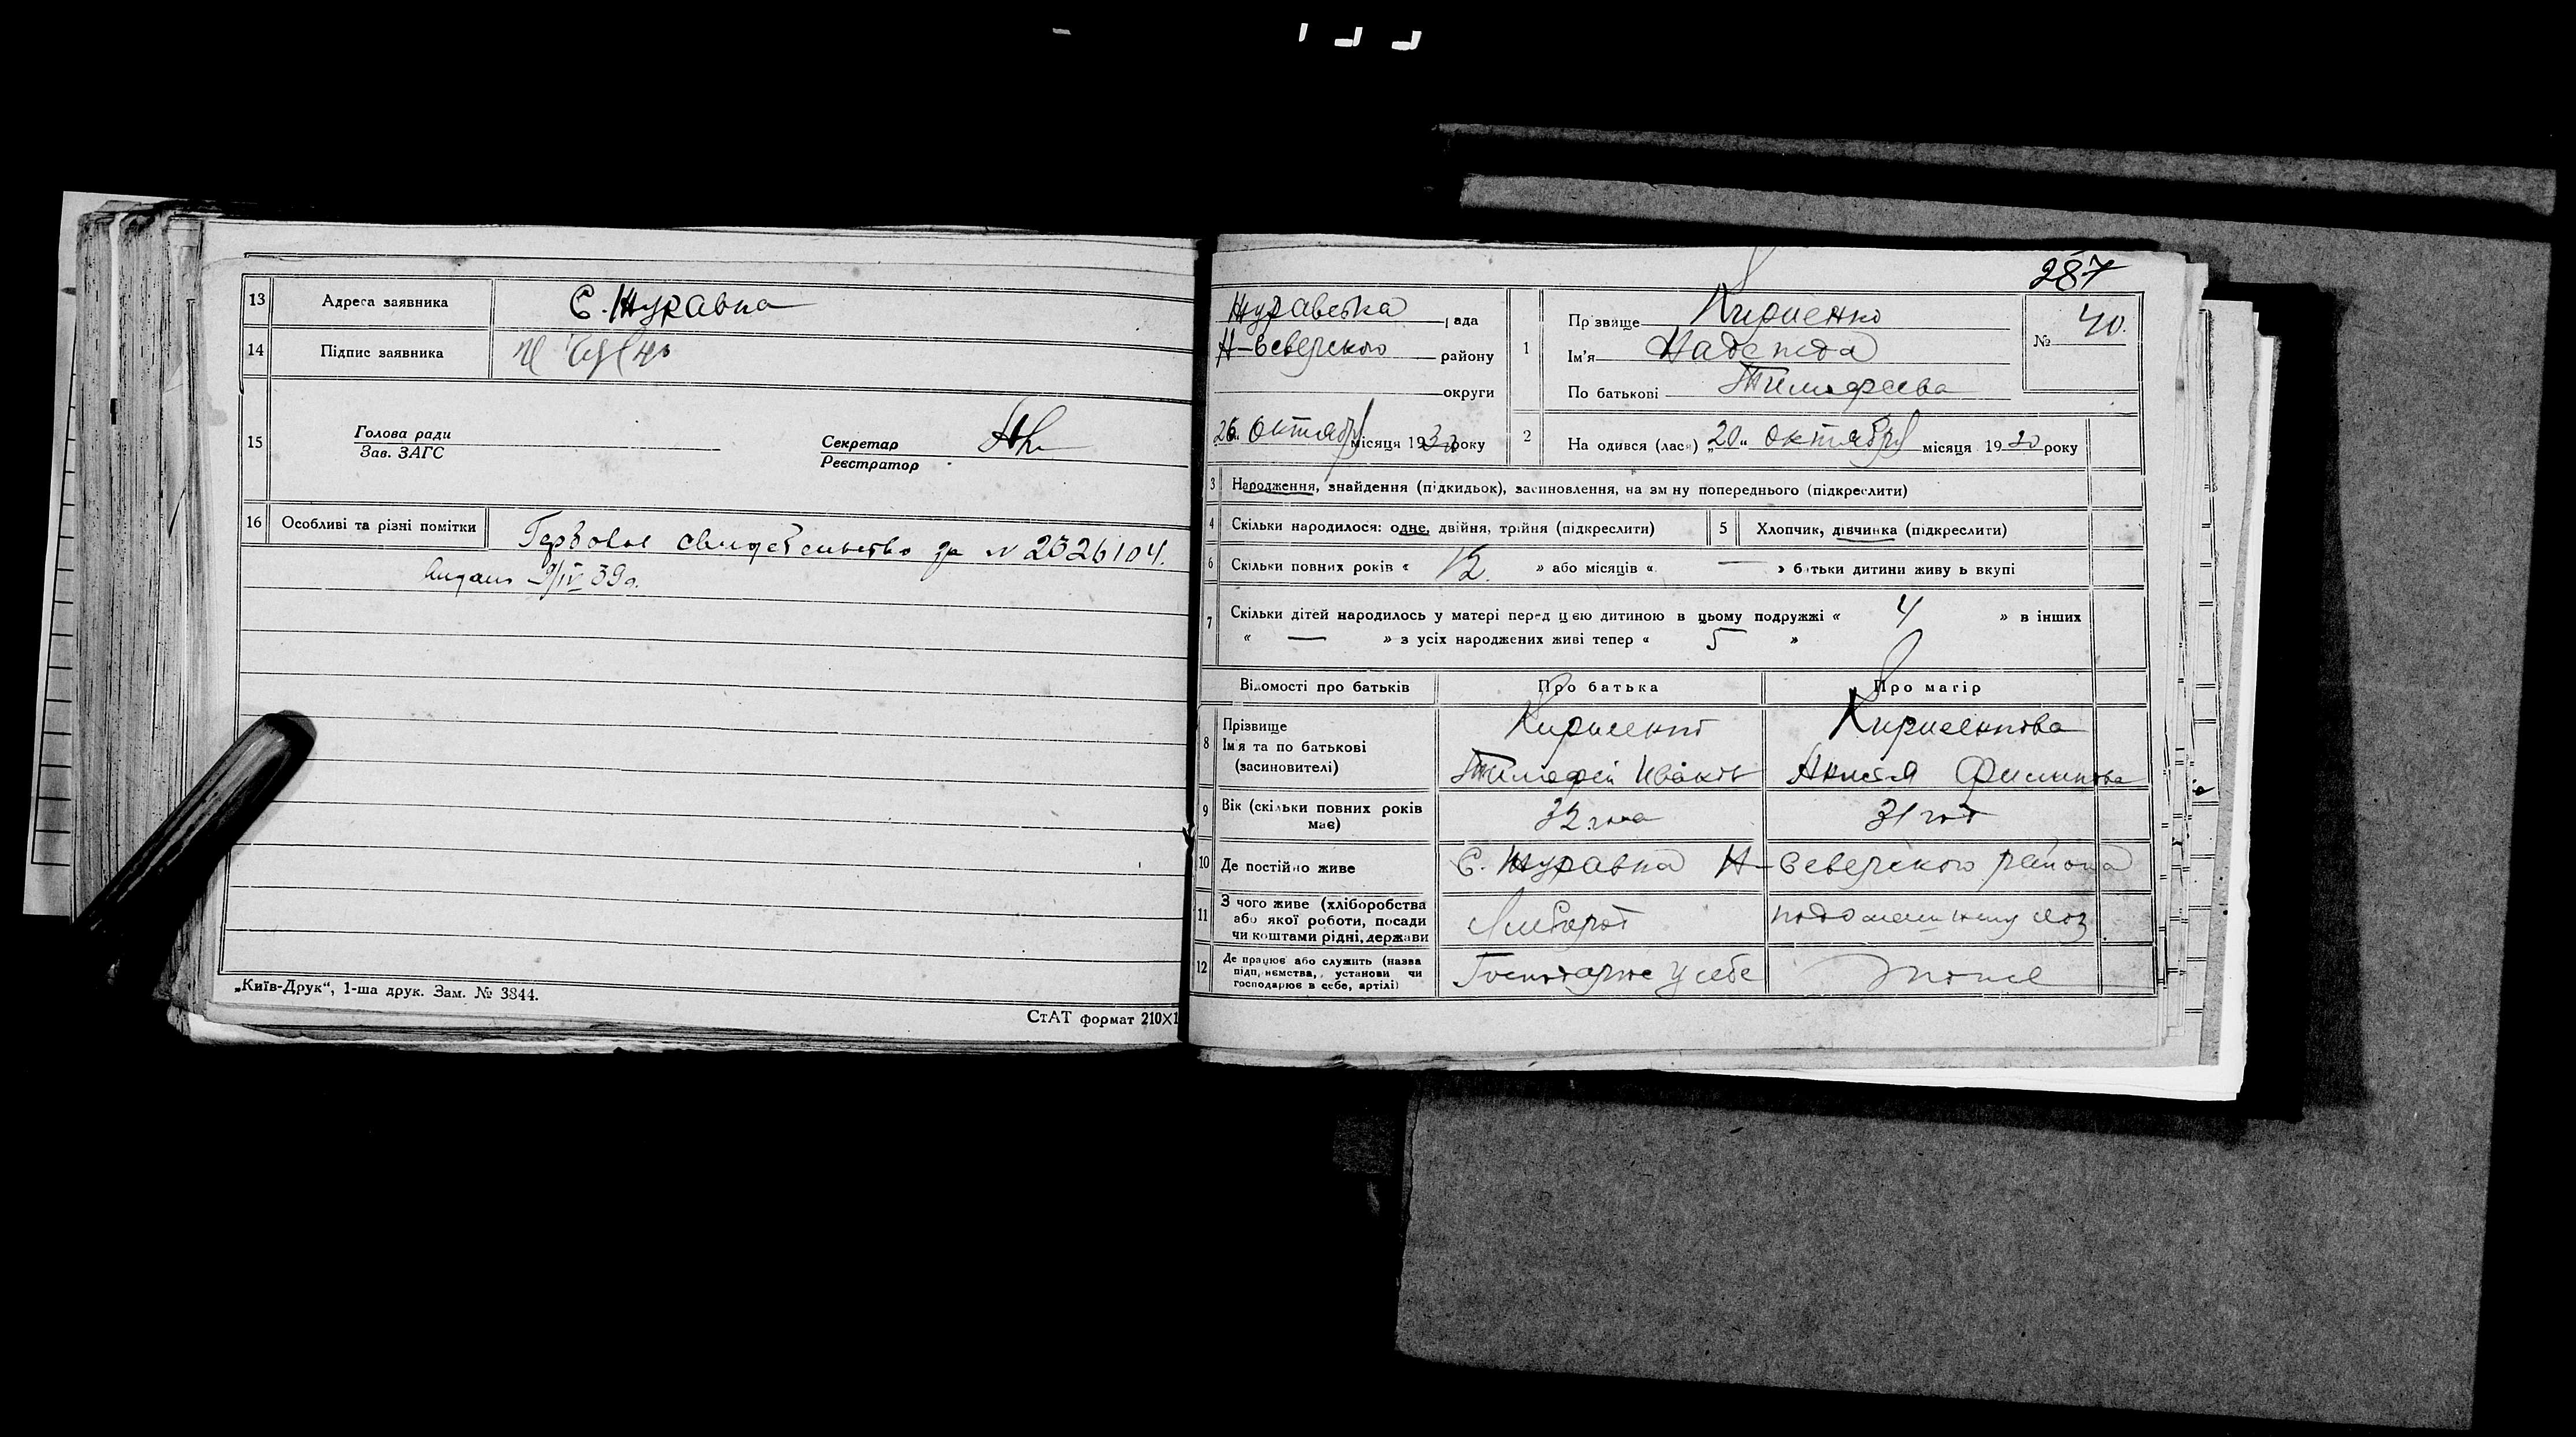 13 Адреса заявника С. Журавка
14 Підпис заявника
15 Голова ради
Зав. ЗАГС
Секретар
Реєстратор
16 Особливі та різні помітки Гербовое свидетельство за № 2326104.
выдано 9/IV 39 г.
„Київ-Друк“, 1-ша друк. Зам. № 3844.
СтАТ формат 210X1
287
Журавська рада
Н-Северского району
округи
26 „ октября місяця 1930 року
1 Прізвище Кириенко
Ім'я Надежда
По батькові Тимофеева
№ 40.
2 На одився (лася) „20„ октября місяця 1930 року
3 Народження, знайдення (підкидьок), засиновлення, на зм ну попереднього (підкреслити)
4 Скільки народилося: одне, двійня, трійня (підкреслити) 5 Хлопчик, дівчинка (підкреслити)
6 Скільки повних років « 12. » або місяців « — » батьки дитини живу ь вкупі
7 Скільки дітей народилось у матері перед цією дитиною в цьому подружжі « 4 » в інших
« — » з усіх народжених живі тепер « 5 »
Відомості про батьків Про батька Про матір
8 Прізвище
Ім'я та по батькові
(засиновителі)
Кириенко
Тимофей Иванов
Кириенкова
Анисья Филипова
9 Вік (скільки повних років має) 32 года 31 год
10 Де постійно живе С. Журавка Н-Северского района
11 З чого живе (хліборобства
або якої роботи, посади
чи коштами рідні, держави
Хлебороб
по домашниму хоз
12 Де працює або служить (назва
підп, немства, установи чи
господарює в себе, артілі)
Господарює у себе
тоже